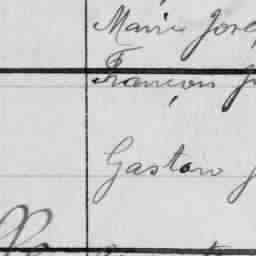 Marie Jose
François J
Gaston J